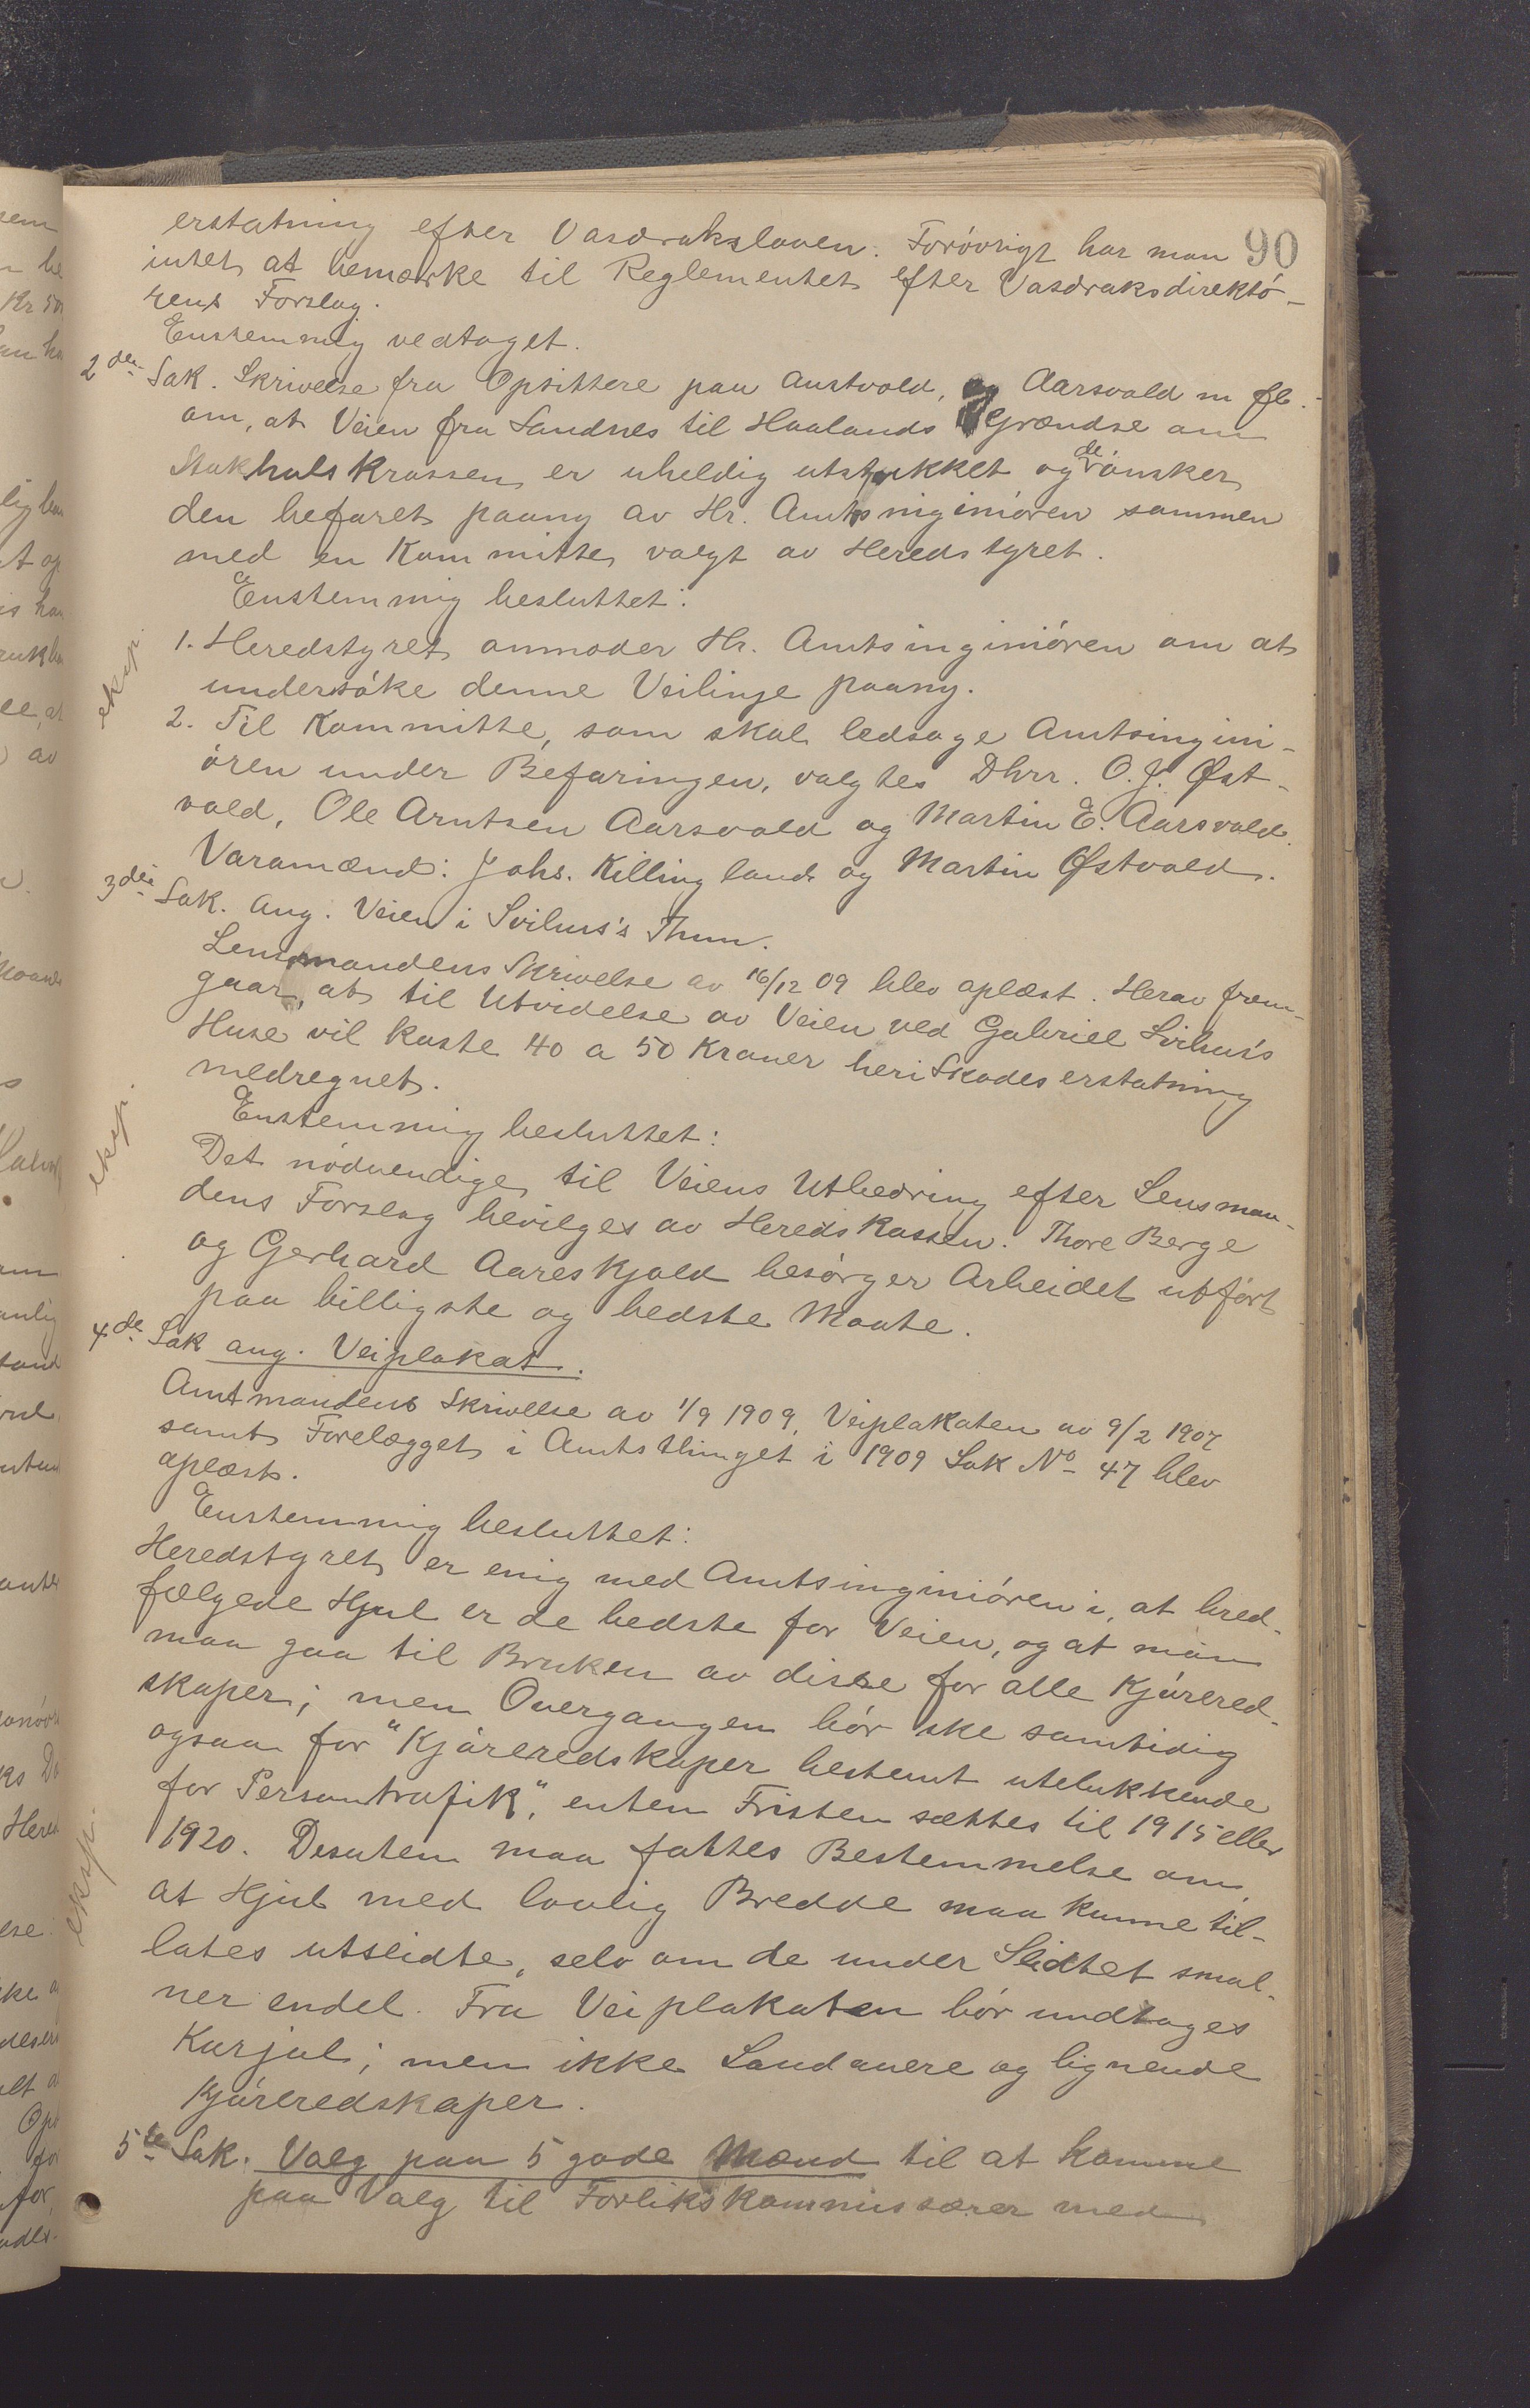 90
erstatning efter Vasdraksloven. Forövrigt har man
intet at bemærke til Reglementet efter Vasdraksdirektö-
rens Forslag.
Enstemmig vedtaget.
2den Sak. Skrivelse fra Opsittere paa Austvold, og Aarsvold m fl.
om, at Veien fra Sandnes til Haalands Grændse om
Stokhulskrossen er uheldig utstukket og de önsker
den befaret paany av Hr. Amtsinginiören sammen
med en Kommitte valgt av Heredstyret.
Enstemmig besluttet:
eksp.
1. Heredstyret anmoder Hr. Amtsinginiören om at
undersöke denne Veilinje paany.
2. Til Kommitte, som skal ledsage Amtsingini-
ören under Befaringen, valgtes Dhrr. O. J. Øst-
vold, Ole Arntsen Aarsvold og Martin E. Aarsvold.
Varamænd: Johs. Killingland og Martin Østvold.
3die Sak. ang. Veien i Svihus's Thun.
Lensmandens Skrivelse av 16/12 09 blev oplæst. Herav frem-
gaar, at til Utvidelse av Veien ved Gabriel Svihus's
Huse vil koste 40 a 50 Kroner heri Skadeserstatning
medregnet.
eksp.
Enstemmig besluttet:
Det nödvendige til Veiens Utbedring efter Lensman-
dens Forslag bevilges av Heredskassen. Thore Berge
og Gerhard Aareskjold besörger Arbeidet utfört
paa billigste og bedste Maate.
4de Sak ang. Veiplakat.
Amtmandens Skrivelse av 1/9 1909, Veiplakaten av 9/2 1907
samt Forelægget i Amtsthinget i 1909 Sak No 47 blev
oplæst.
Enstemmig besluttet:
Heredstyret er enig med Amtsinginiören i, at bred-
fælgede Hjul er de bedste for Veien, og at man
maa gaa til Bruken av disse for alle Kjörered-
skaper; men Overgangen bör ske samtidig
ogsaa for "Kjöreredskaper bestemt utelukkende
for Persontrafik", enten Fristen sættes til 1915 eller
eksp.
1920. Desuten maa fattes Bestemmelse om,
at Hjul med lovlig Bredde maa kunne til-
lates utslidte, selv om de under Slidtet smal-
ner endel. Fra Veiplakaten bör undtages
Karjol; men ikke Landauere og lignende
Kjöreredskaper.
5te Sak. Valg paa 5 gode Mænd til at komme
paa Valg til Forlikskommissærer med